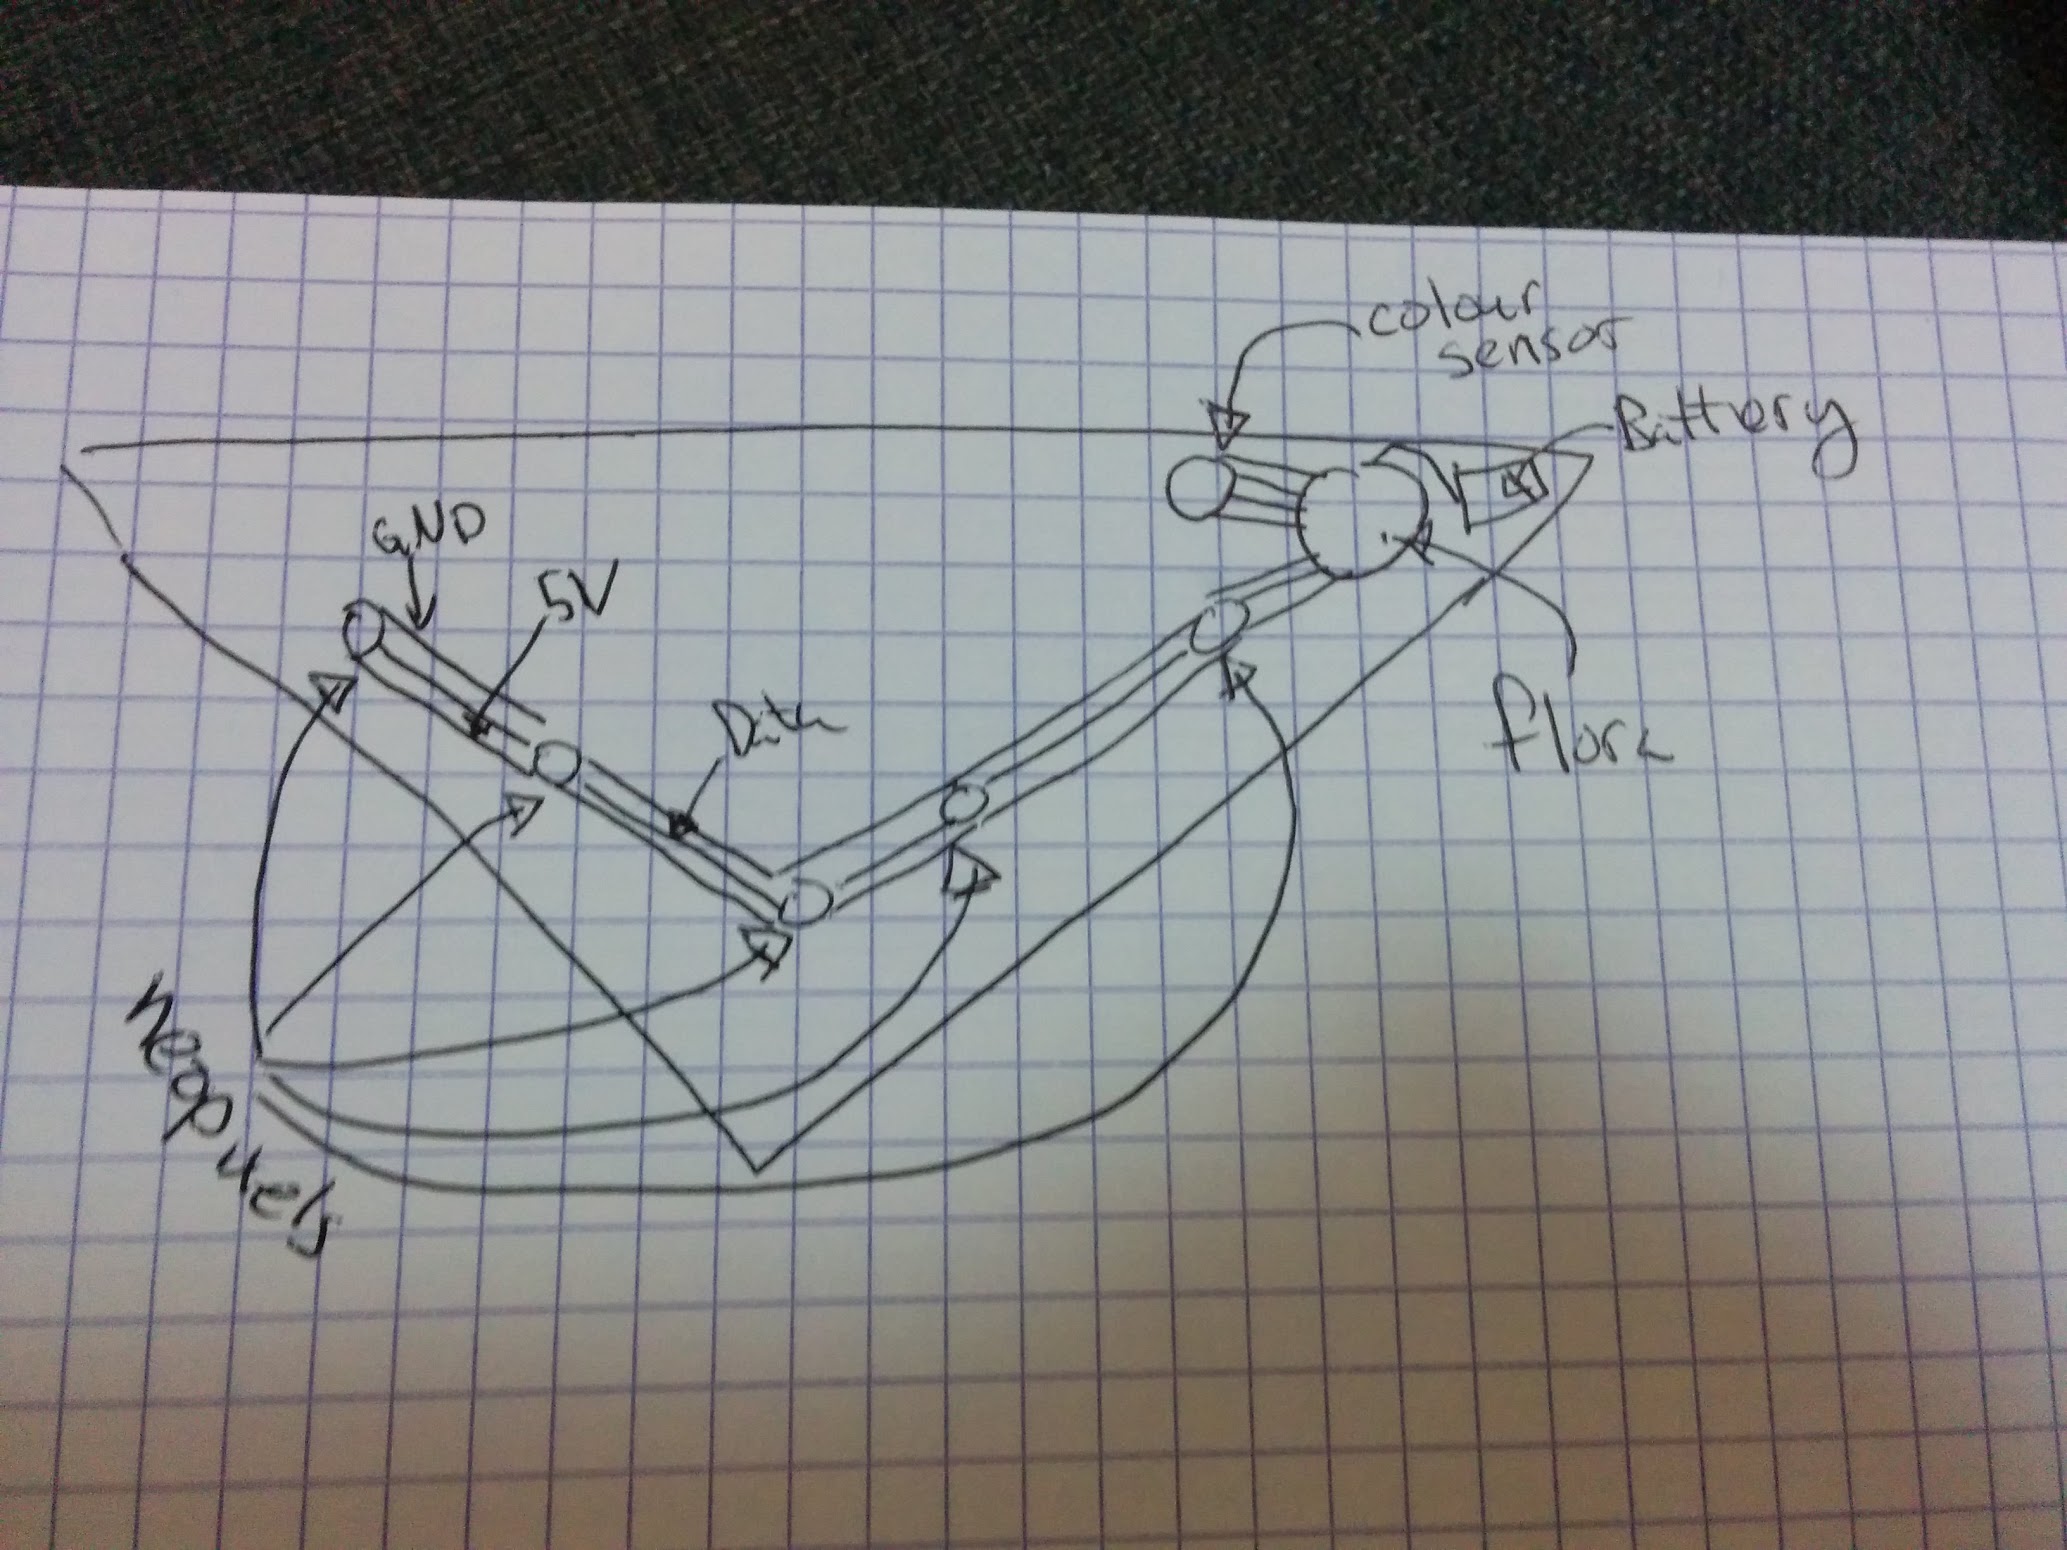 colour
sensor
Battery
GND
5V
Data
flora
neopixels